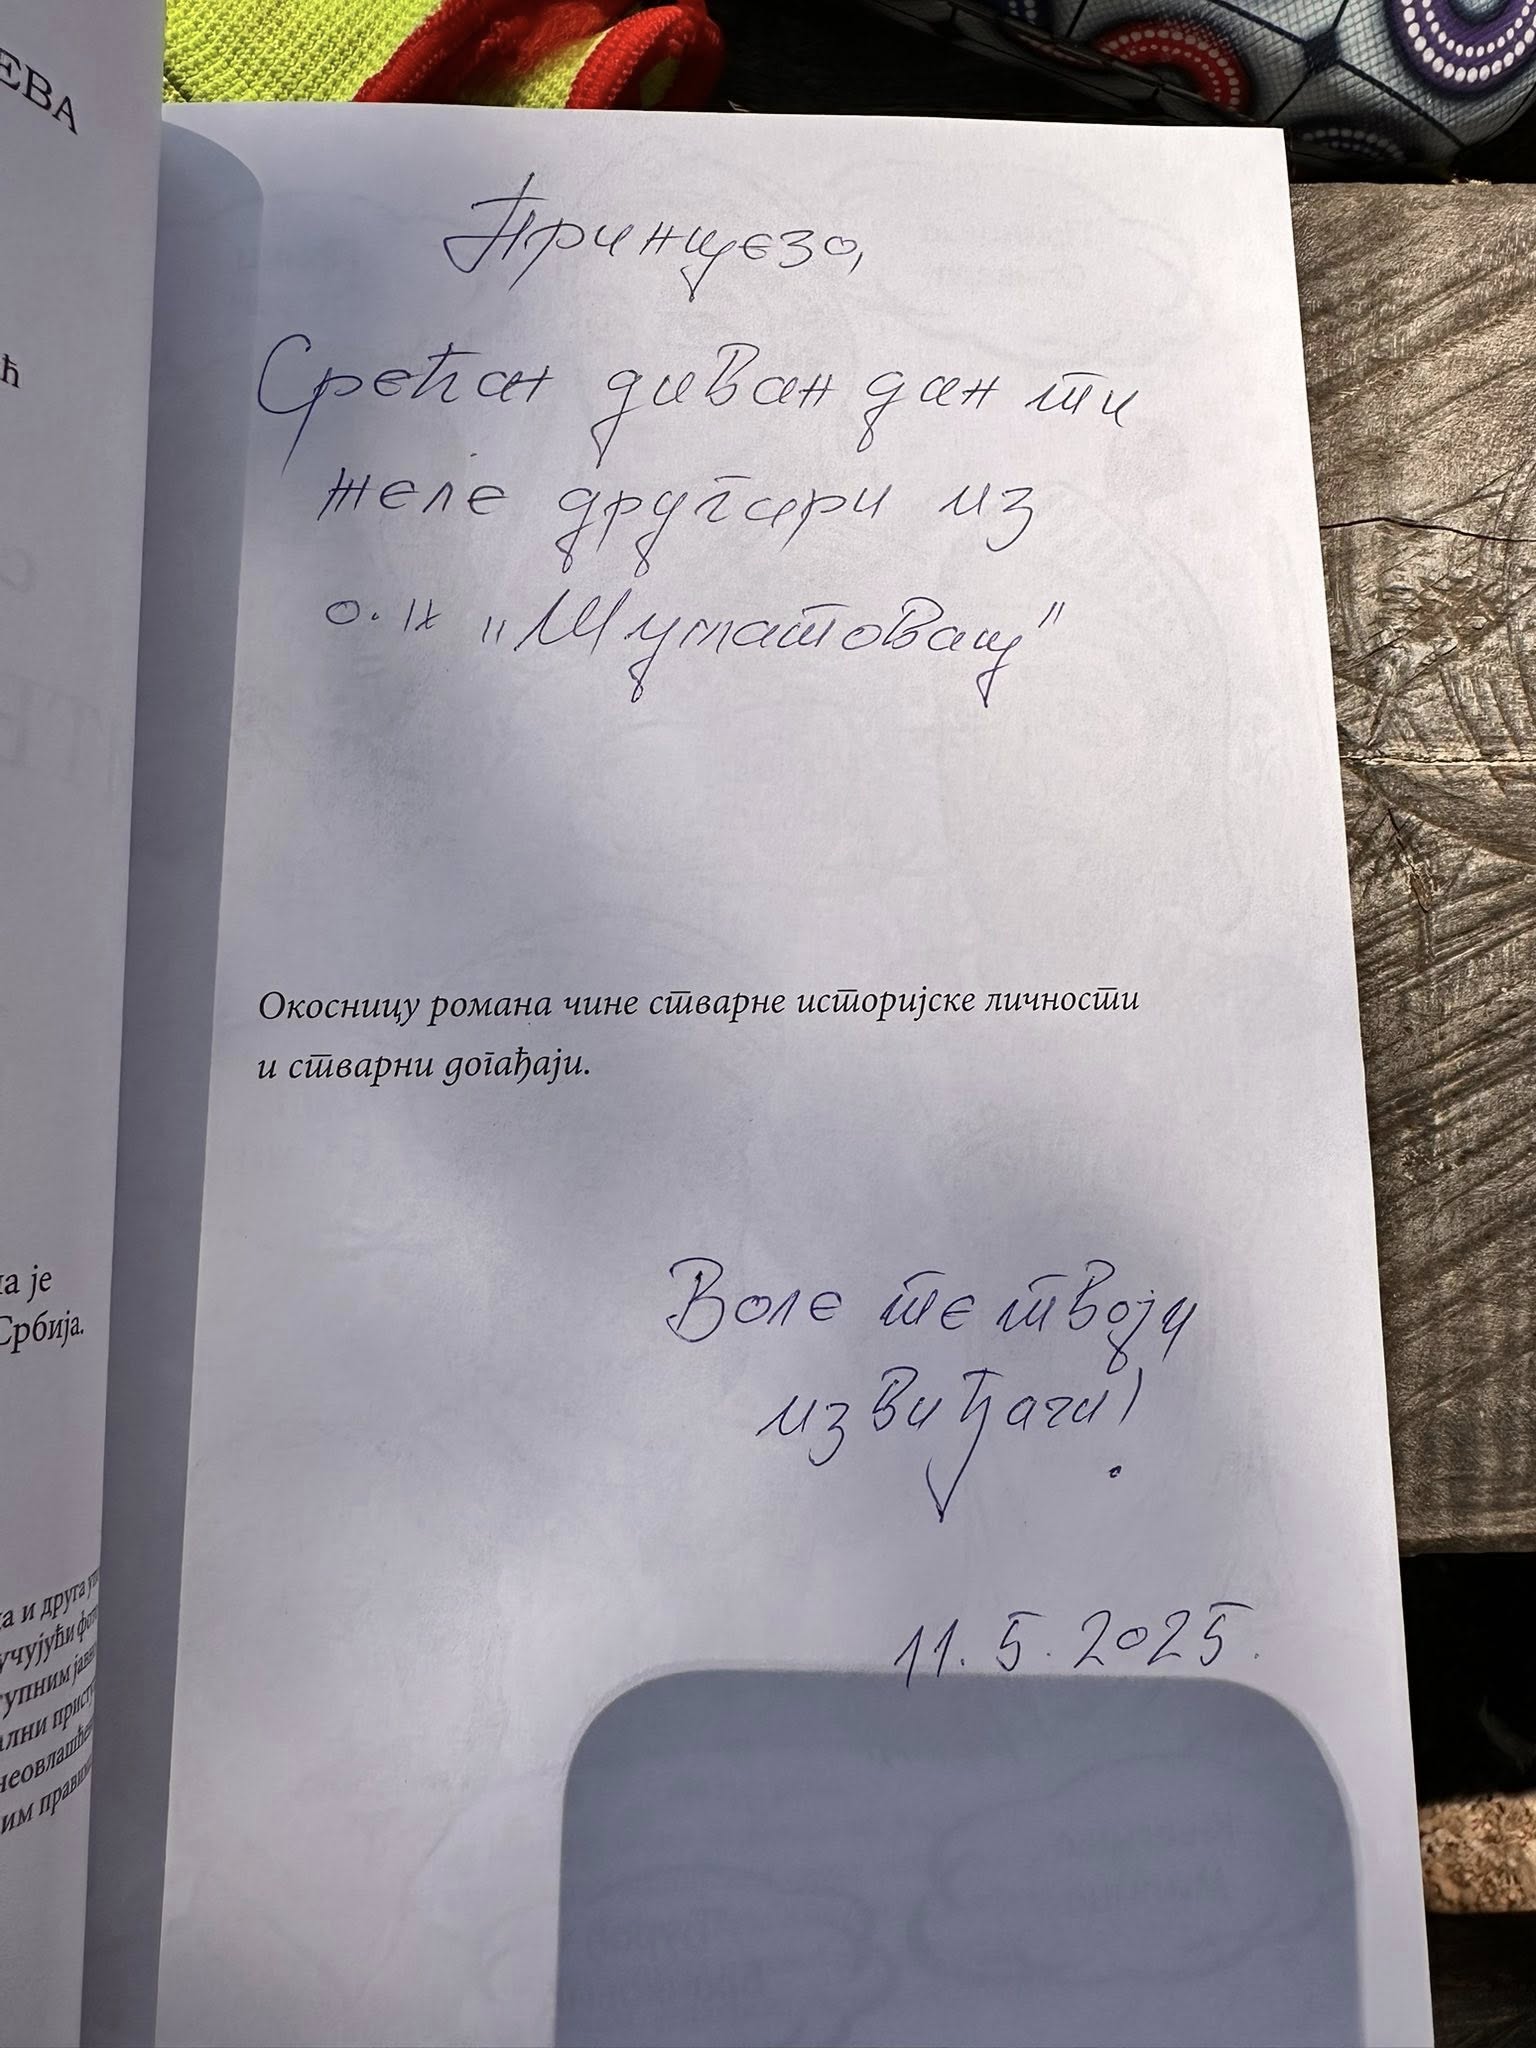 ЕВА
ћ
на је
Србија.
ка и друга
учујући
тупним
ални
неовлашће
им
Принцезо,
Срећан диван дан ти
желе другари из
о.и. „Шуматовац"
Окосницу романа чине стварне историјске личности
и стварни догађаји.
Воле те твоји
извиђачи!
11.5.2025.